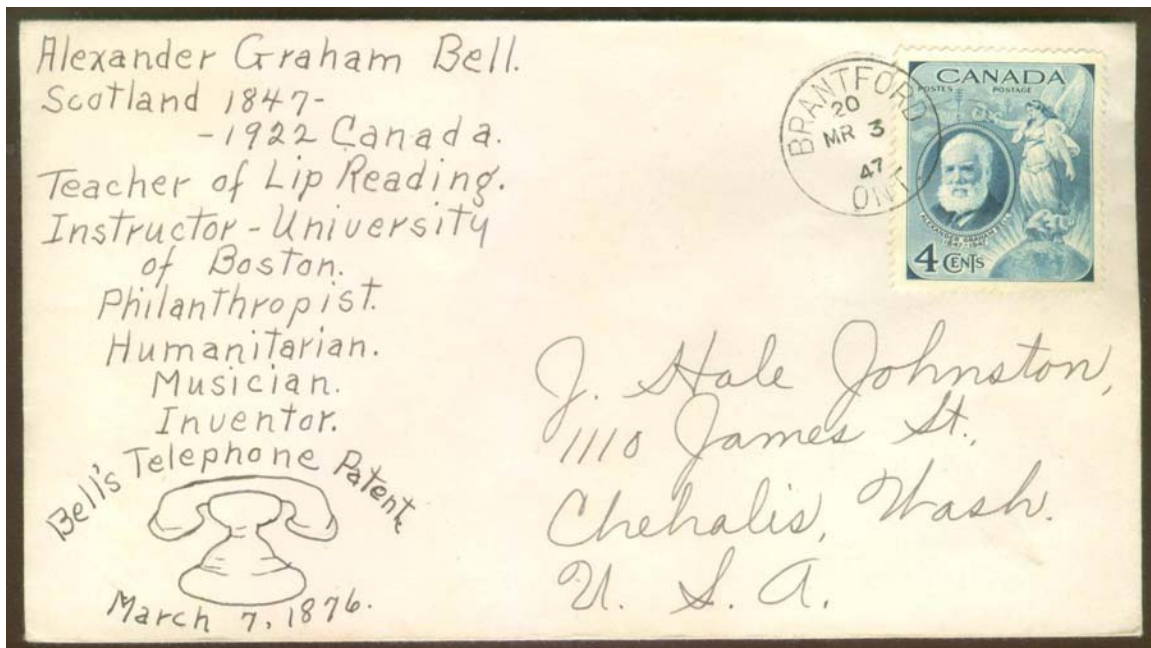 Alexander Graham Bell.
Scotland 1847-
-1922 Canada.
Teacher of Lip Reading.
Instructor - University
of Boston.
Philanthropist.
Humanitarian.
Musician.
Inventor.
Bell's Telephone Patent,
March 7, 1876.
BRANTFORD
20
MR 3
47
ONT
CANADA
POSTES POSTAGE
ALEXANDER GRAHAM BELL
1847-1947
4 CENTS
J. Hale Johnston,
1110 James St.,
Chehalis, Wash.
U. S. A.